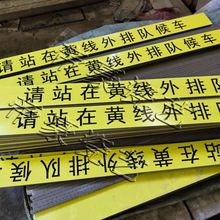 请站在黄线外排队候车
请站在黄线外排队候车
请站在黄线外排队候车
请站在黄线外排队候车
站在黄线外排队候